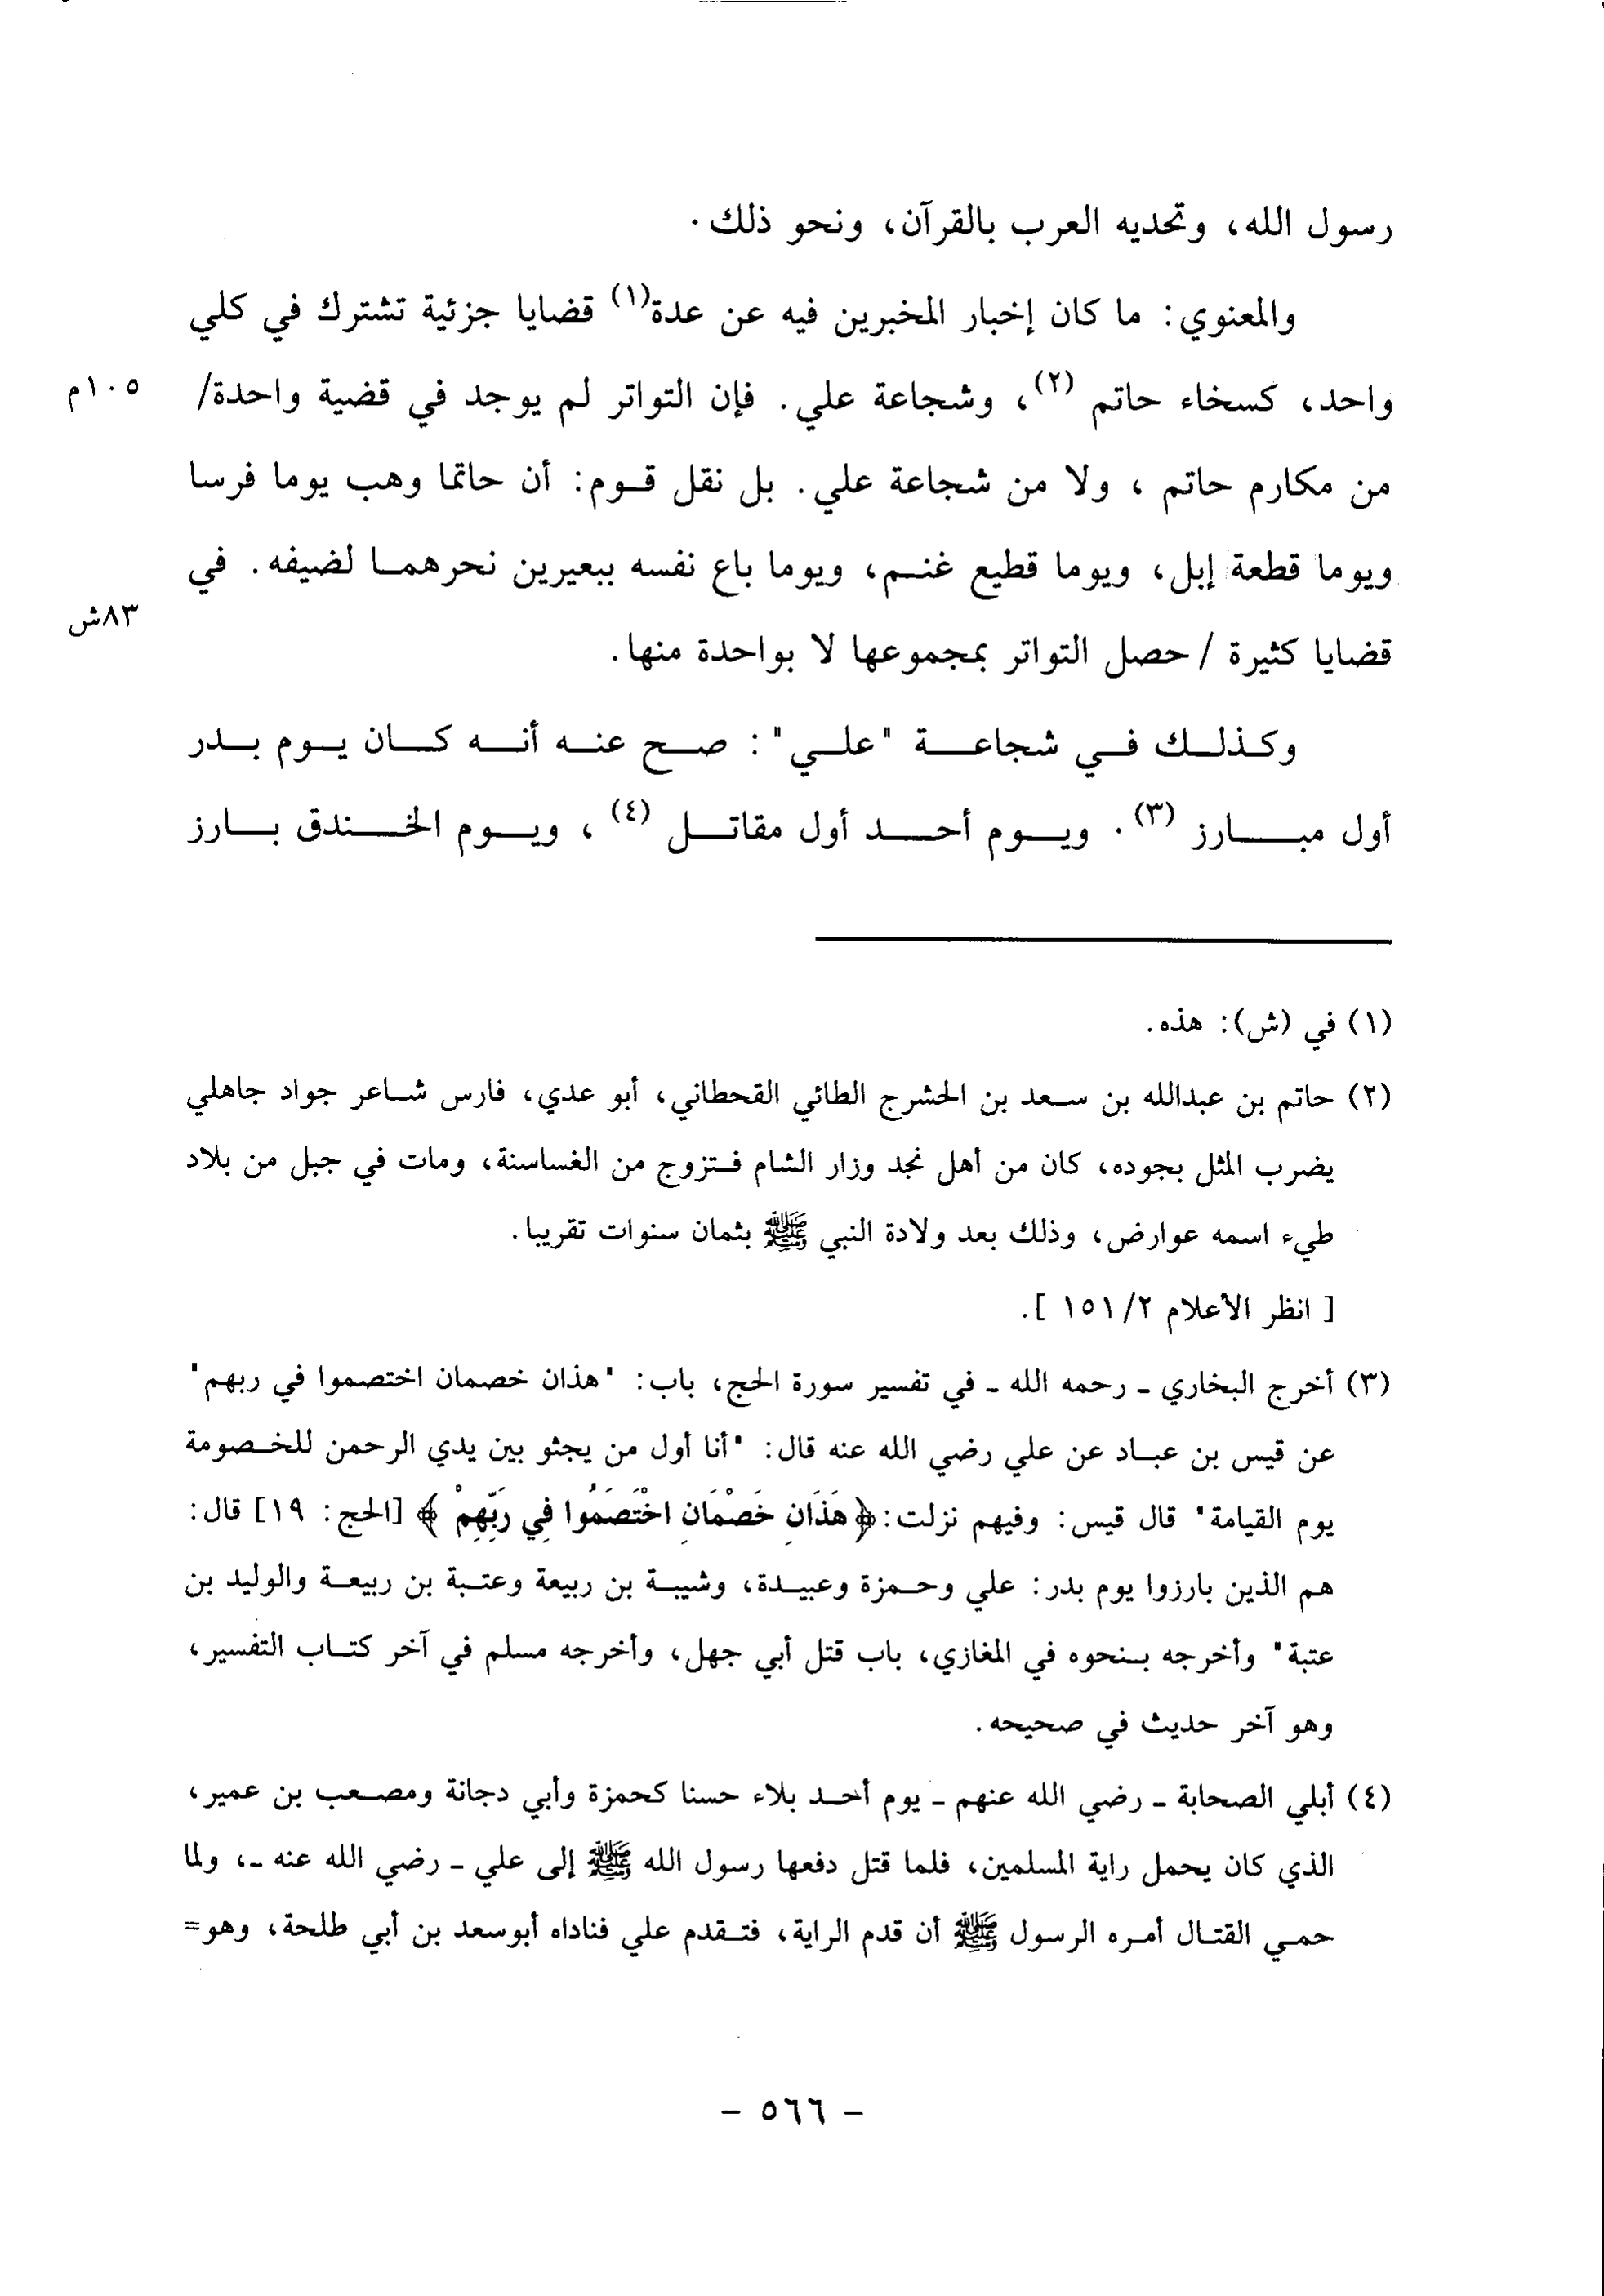 رسول الله، وتحديه العرب بالقرآن، ونحو ذلك.
والمعنوي: ما كان إخبار المخبرين فيه عن عدة(١) قضايا جزئية تشترك في كلي
واحد، كسخاء حاتم (٢)، وشجاعة علي. فإن التواتر لم يوجد في قضية واحدة/ ١٠٥م
من مكارم حاتم ، ولا من شجاعة علي. بل نقل قوم: أن حاتما وهب يوما فرسا
ويوما قطعة إبل، ويوما قطيع غنم، ويوما باع نفسه ببعيرين نحرهما لضيفه. في
٨٣ش
قضايا كثيرة / حصل التواتر بمجموعها لا بواحدة منها.
وكذلك في شجاعة "علي": صح عنه أنه كان يوم بدر
أول مبارز (٣). ويوم أحد أول مقاتل (٤)، ويوم الخندق بارز
(١) في (ش): هذه.
(٢) حاتم بن عبدالله بن سعد بن الحشرج الطائي القحطاني، أبو عدي، فارس شاعر جواد جاهلي
يضرب المثل بجوده، كان من أهل نجد وزار الشام فتزوج من الغساسنة، ومات في جبل من بلاد
طيء اسمه عوارض، وذلك بعد ولادة النبي ﷺ بثمان سنوات تقريبا.
[ انظر الأعلام ١٥١/٢ ].
(٣) أخرج البخاري ـ رحمه الله ـ في تفسير سورة الحج، باب: "هذان خصمان اختصموا في ربهم"
عن قيس بن عباد عن علي رضي الله عنه قال: "أنا أول من يجثو بين يدي الرحمن للخصومة
يوم القيامة" قال قيس: وفيهم نزلت: ﴿هَذَانِ خَصْمَانِ اخْتَصَمُوا فِي رَبِّهِمْ﴾ [الحج: ١٩] قال:
هم الذين بارزوا يوم بدر: علي وحمزة وعبيدة، وشيبة بن ربيعة وعتبة بن ربيعة والوليد بن
عتبة" وأخرجه بنحوه في المغازي، باب قتل أبي جهل، وأخرجه مسلم في آخر كتاب التفسير،
وهو آخر حديث في صحيحه.
(٤) أبلي الصحابة ـ رضي الله عنهم ـ يوم أحد بلاء حسنا كحمزة وأبي دجانة ومصعب بن عمير،
الذي كان يحمل راية المسلمين، فلما قتل دفعها رسول الله ﷺ إلى علي ـ رضي الله عنه ـ، ولما
حمي القتال أمره الرسول ﷺ أن قدم الراية، فتقدم علي فناداه أبوسعد بن أبي طلحة، وهو=
- ٥٦٦ -